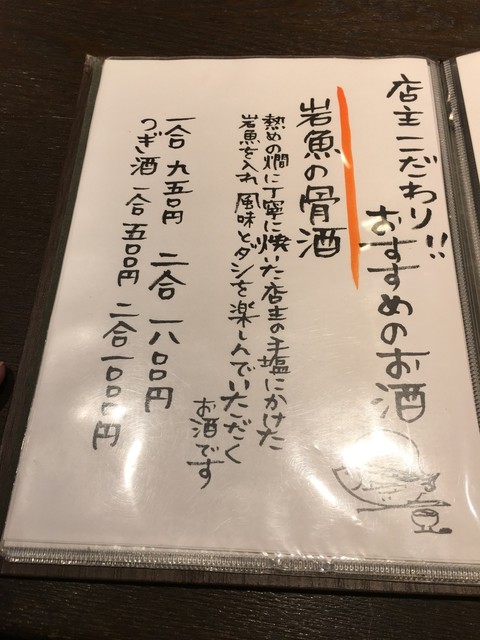 店主こだわり!!
おすすめのお酒
岩魚の骨酒
熱めの燗に丁寧に焼いた店主の手塩にかけた
岩魚を入れ風味とダシを楽しんでいただく
お酒です
一合 九五〇円 二合 一八〇〇円
つぎ酒 一合 五〇〇円 二合 一〇〇〇円